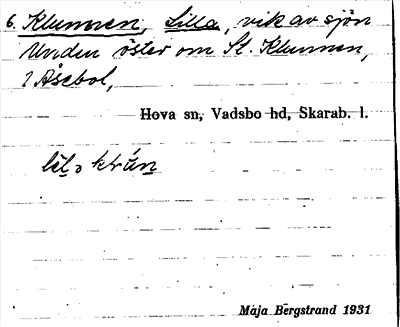 6. Klunnen, Lilla, vik av sjön
Unden öster om St. Klunnen,
i Åsebol,
Hova sn, Vadsbo hd, Skarab. l.
Maja Bergstrand 1931